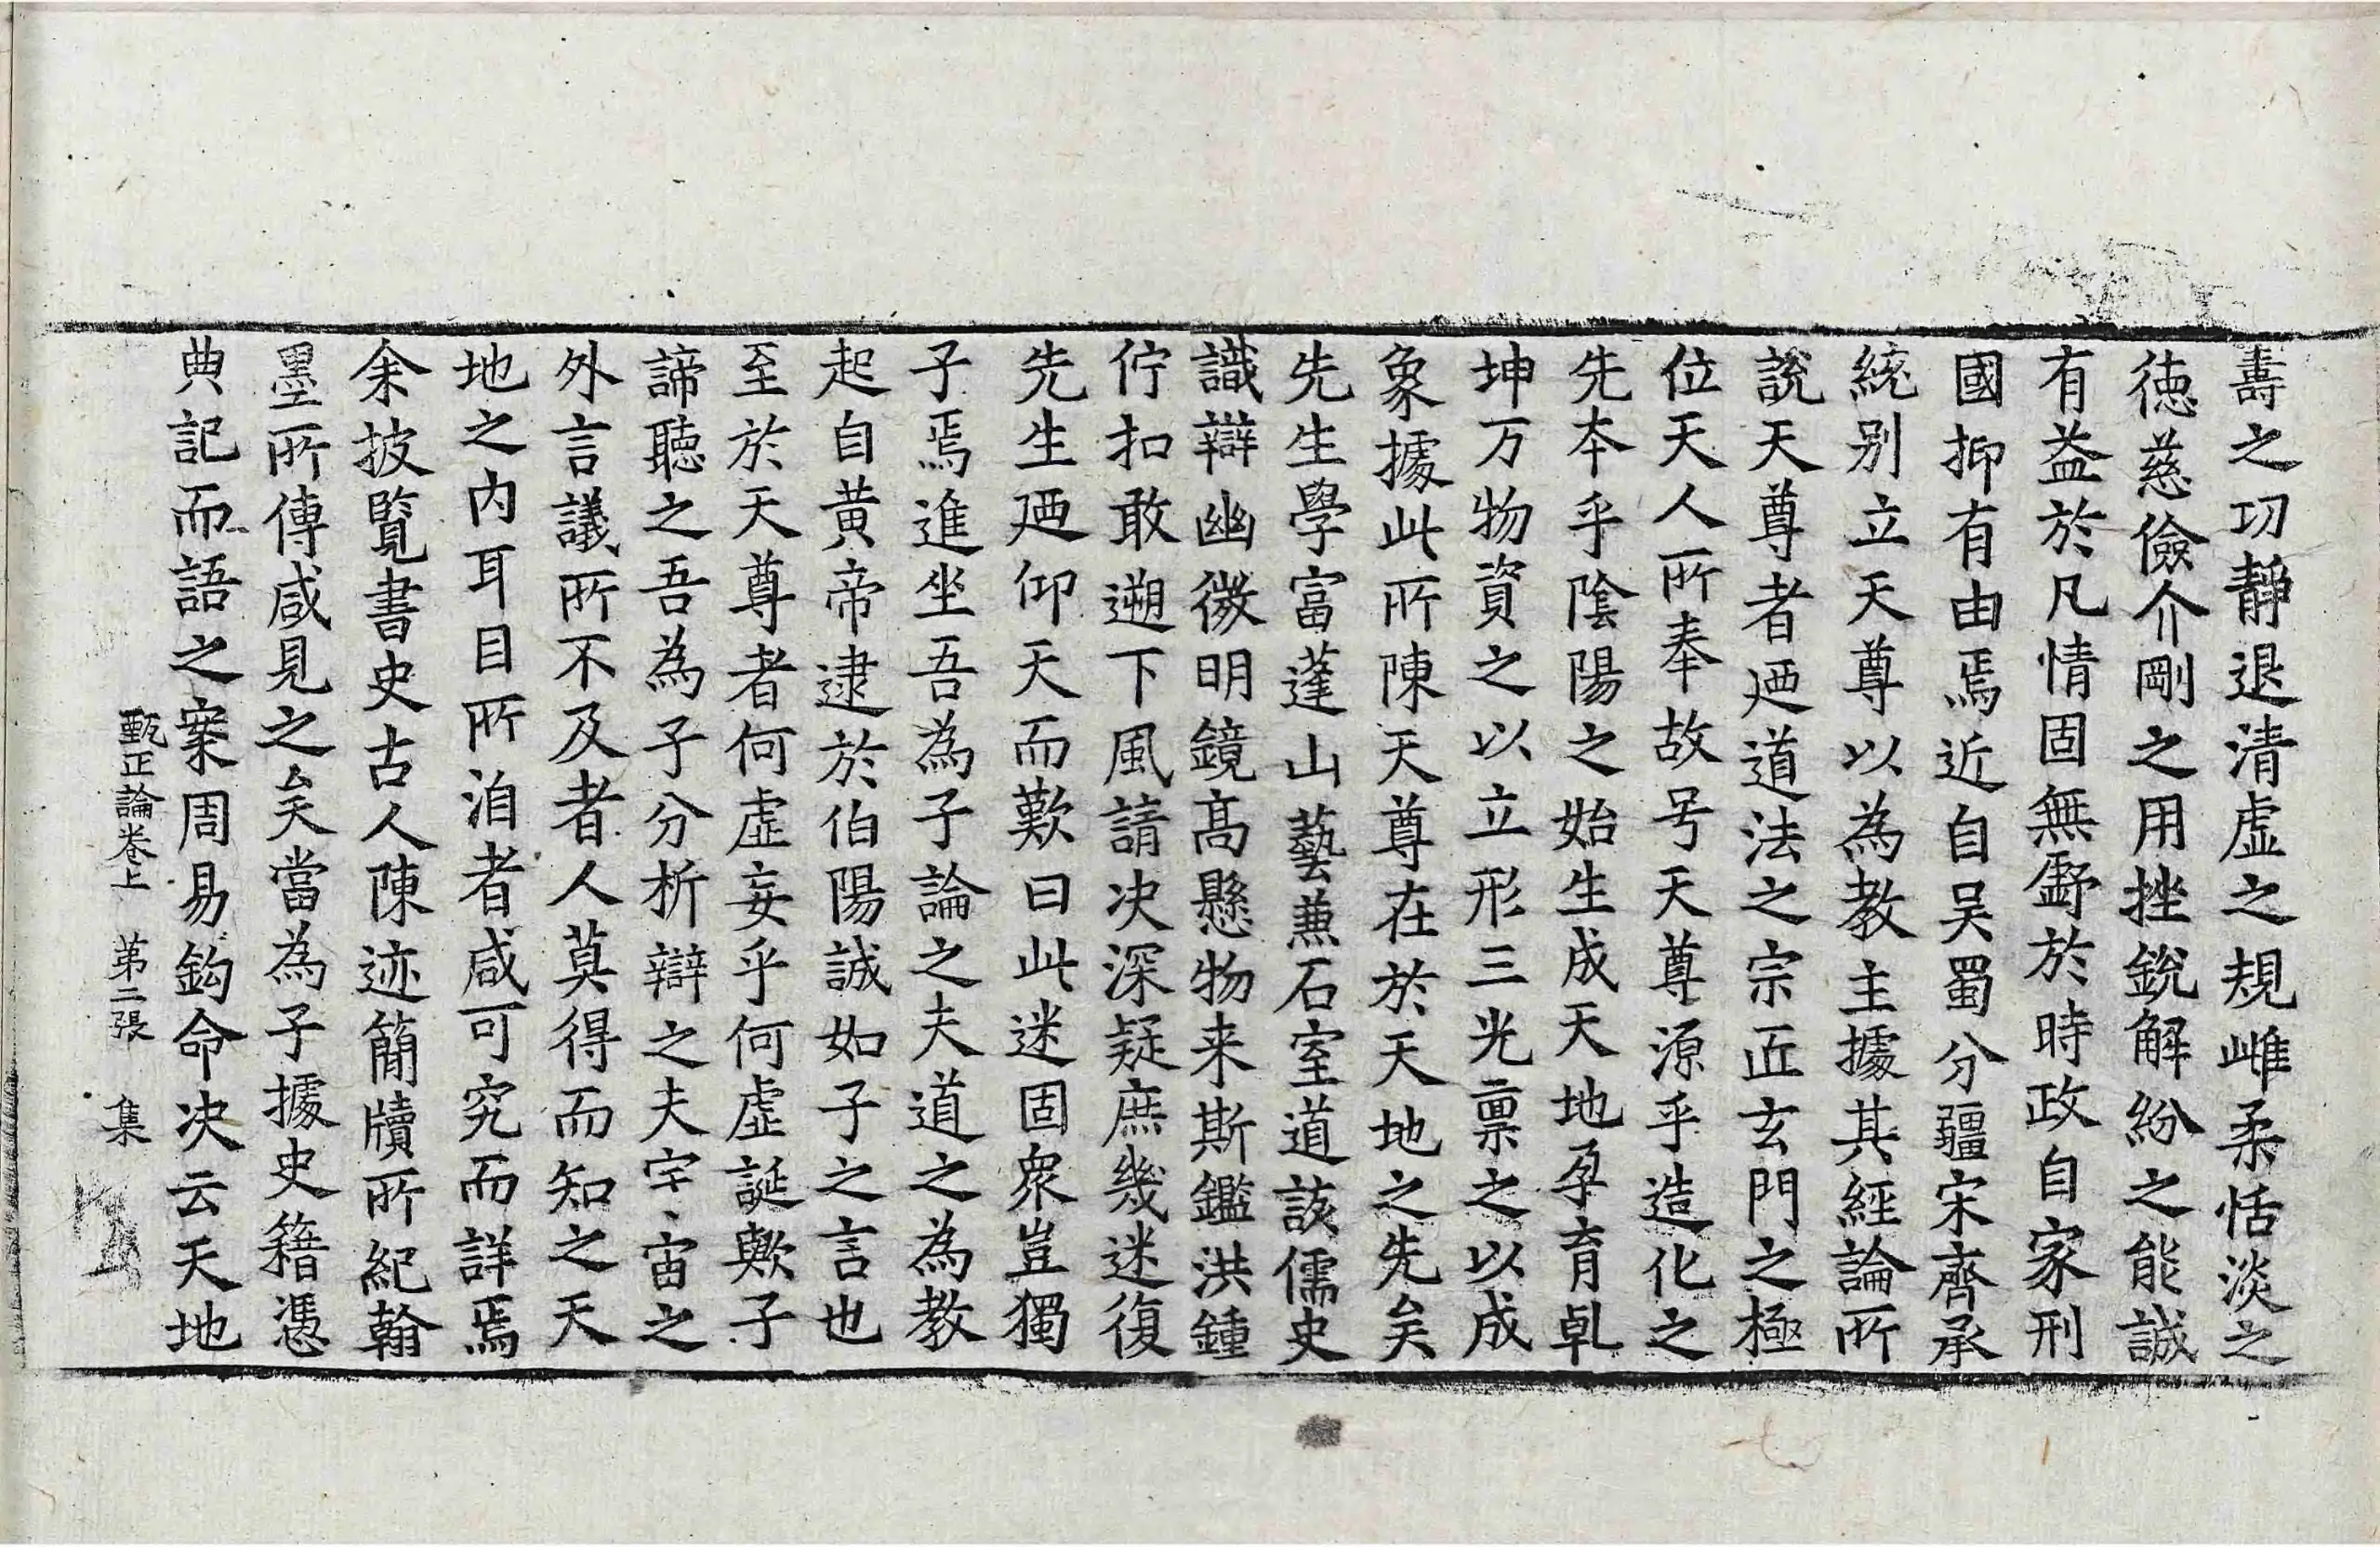 壽之功靜退清虛之規雌柔恬淡之
德慈儉介剛之用挫銳解紛之能誠
有益於凡情固無爵於時政自家刑
國抑有由焉近自吴蜀分疆宋齊承
統别立天尊以為教主據其經論所
說天尊者廼道法之宗匠玄門之極
位天人所奉故号天尊源乎造化之
先本乎陰陽之始生成天地孕育乹
坤万物資之以立形三光禀之以成
象據此所陳天尊在於天地之先矣
先生學富蓬山藝兼石室道該儒史
識辯幽微明鏡高懸物来斯鑑洪鍾
佇扣敢遡下風請决深疑庶幾迷復
先生廼仰天而歎曰此迷固衆豈獨
子焉進坐吾為子論之夫道之為教
起自黄帝逮於伯陽誠如子之言也
至於天尊者何虛妄乎何虛誕歟子
諦聽之吾為子分析辯之夫宇宙之
外言議所不及者人莫得而知之天
地之内耳目所洎者咸可究而詳焉
余披覽書史古人陳迹簡牘所紀翰
墨所傳咸見之矣當為子據史籍憑
典記而語之案周易鈎命决云天地
甄正論卷上 第二張 集